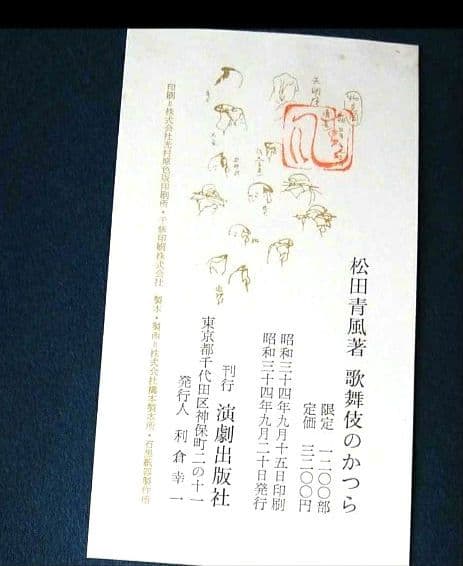 松田青風著 歌舞伎のかつら
限定 一二〇〇部
定価 三二〇〇円
昭和三十四年九月十五日印刷
昭和三十四年九月二十日発行
刊行 演劇出版社
東京都千代田区神保町二の十一
発行人 利倉幸一
印刷と株式会社光村原色版印刷所・千修印刷株式会社 製本・製函と株式会社橋本製本所・石黒紙器製作所